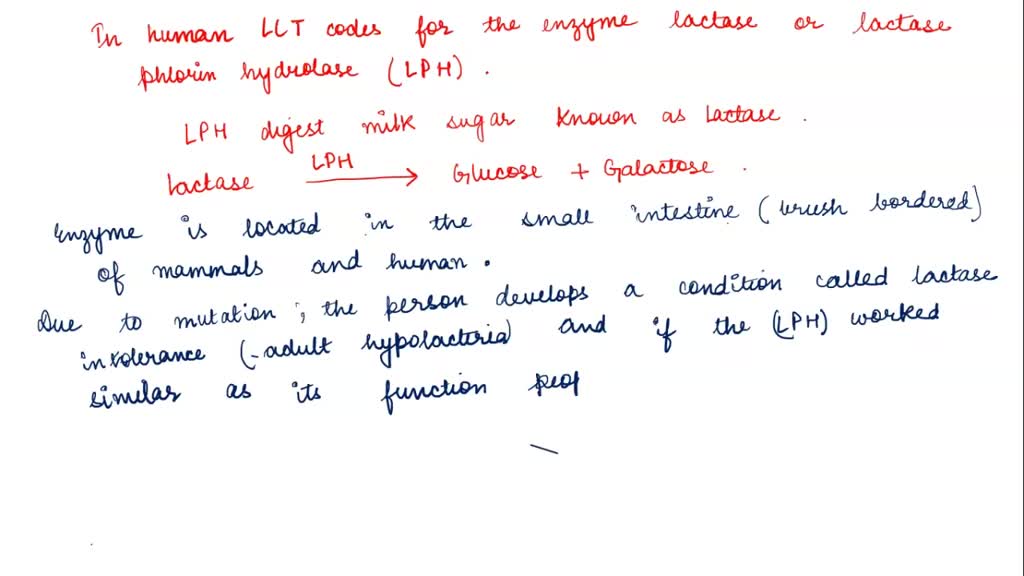 In human LCT codes for the enzyme lactase or lactase
phlorin hydrolase (LPH).
LPH digest milk sugar known as lactase.
lactase LPH → Glucose + Galactose.
Enzyme is located in the small intestine (brush bordered)
of mammals and human.
Due to mutation; the person develops a condition called lactase
intolerance (-adult hypolacteria) and if the (LPH) worked
similar as its function prop